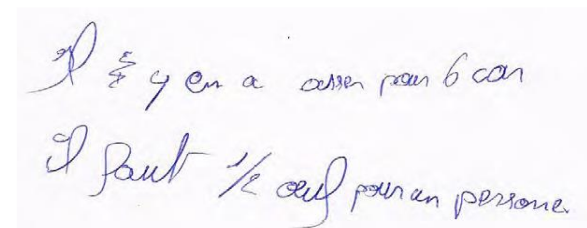 Il y en a asser pour 6 car
il faut 1/2 œuf pour un persone.